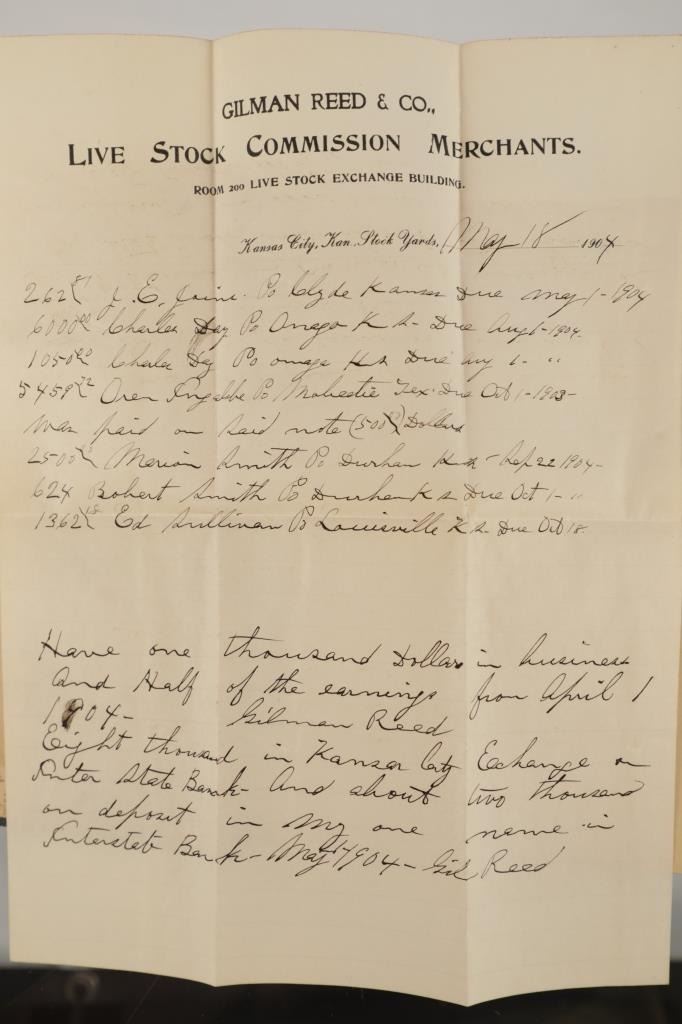 GILMAN REED & CO.,
LIVE STOCK COMMISSION MERCHANTS.
ROOM 200 LIVE STOCK EXCHANGE BUILDING.
Kansas City, Kan. Stock Yards, May 18 1904
J. E. Po Clyde Kansas Due May 1-1904
6000 00 Charles Day Po Onago Ks- Due Aug 1-1904-
1050 00 Charles Day Po onaga Ks Due 1- "
5459 22 Oren Po Mobeetie Tex Due Oct 1-1903-
Was paid on said note (500 Dollars
2500 Marion Smith Po Durhan - Sep 22 1904-
624 Robert Smith Po Durhan Ks Due Oct 1- "
1362 18 Ed Sullivan Po Louisville Ks- Due Oct 18
Have one thousand Dollars in business
and Half of the earnings from April 1
1904- Gilman Reed
Eight thousand in Kansas City Exchange on
Inter State Bank- And about two thousand
on deposit in my one name in
Interstate Bank- May 1904- Gil Reed